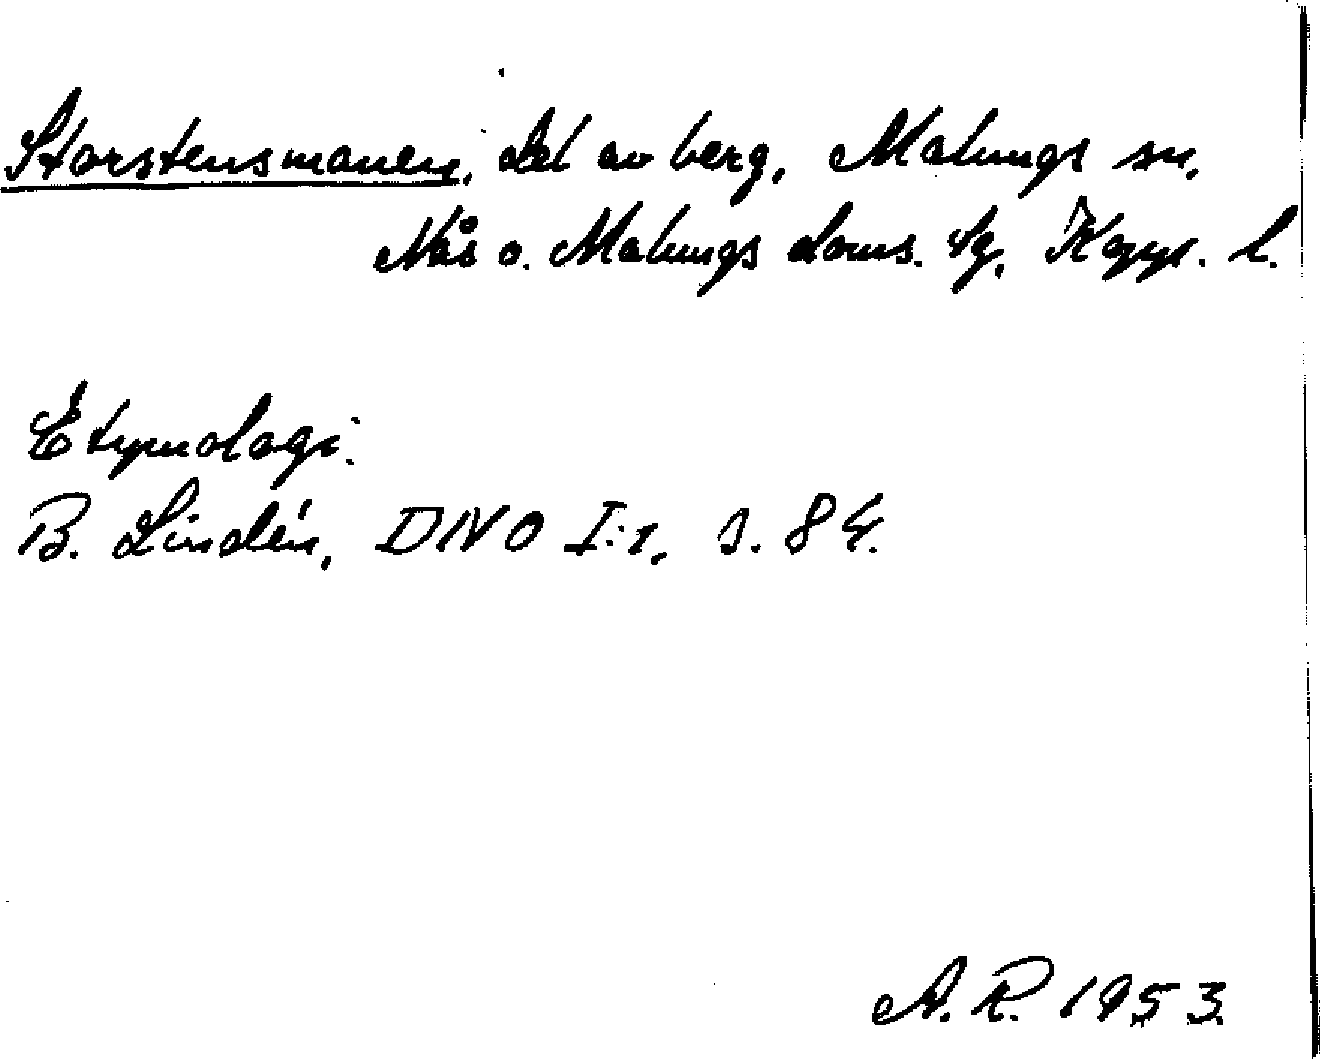 Storstensmanen, del av berg, Malungs sn,
Nås o. Malungs doms. tg, Kopp. l.
Etymologi:
B. Lindén, DNO I:1, s. 84.
A. R. 1953.